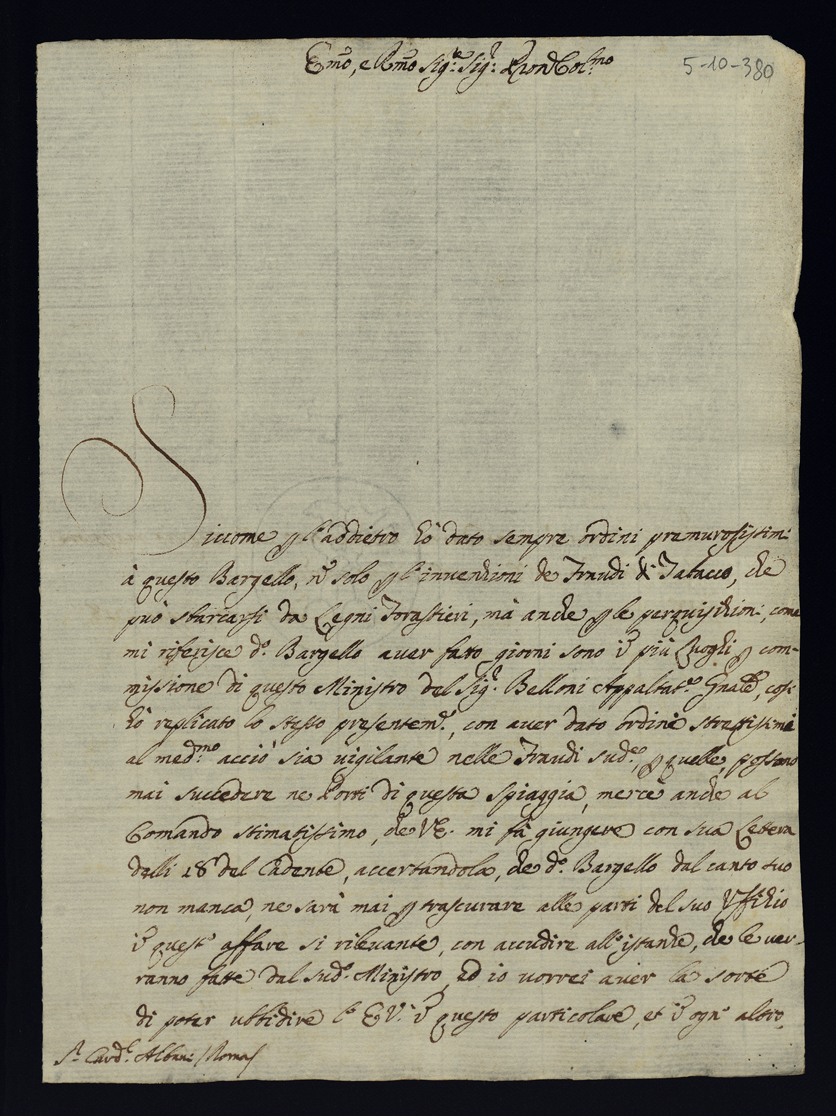 Emo, e Rmo Sig:re Sig:r Pron Col:mo
5-10-380
Siccome p l'addietro hò dato sempre ordini premurosissimi
à questo Bargello, nō solo p l'invenzioni de Fraudi di Tabacco, che
può sbarcarsi da Legni Forastieri, mà anche p le perquisizioni, come
mi riferisce d:o Bargello aver fatto giorni sono ī più luoghi p com-
missione di questo Ministro del Sig:r Belloni Appaltat:e Gnāle, così
hò replicato lo stesso presentem:e, con aver dato ordini strettissimi
al med:mo acciò sia vigilante nelle Fraudi sud:e, p quelle, possano
mai succedere ne Porti di questa Spiaggia, mercè anche al
Comando stimatissimo, che VE. mi fà giungere con sua Lettera
delli 18 del Cadente, accertandola, che d:o Bargello dal canto suo
non manca, ne sarà mai p trascurare alle parti del suo Uffizio
ī quest' affare si rilevante, con accudire all'istanze, che le ver-
ranno fatte dal sud:o Ministro, ed io vorrei aver la sorte
di poter ubbidire l' E.V. ī questo particolare, et ī ogn' altro,
S:r Card:l Albani (Roma)